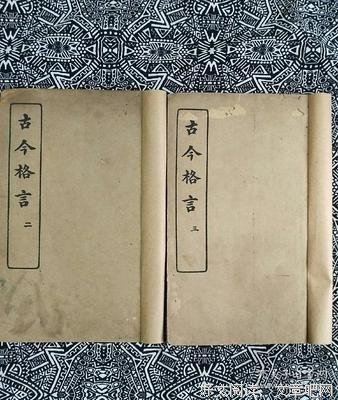 古今格言 二
古今格言 三